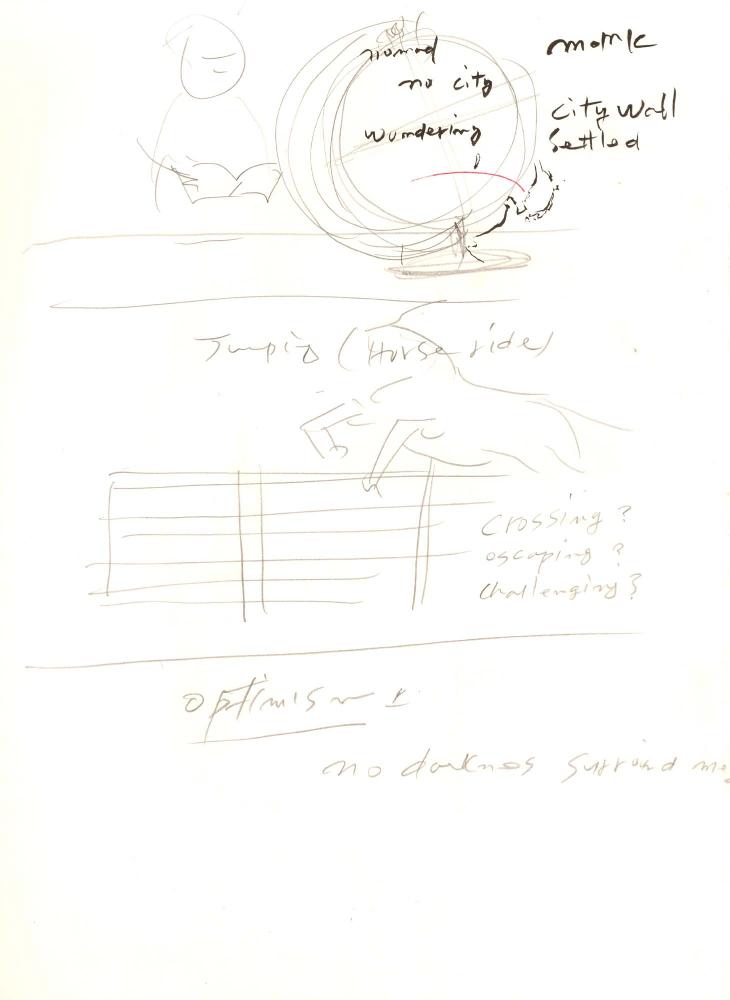 nomad
no city
wundering
momk
city wall
settled
Jumpig (Horse ride)
crossing ?
oscaping ?
challenging ?
optimism
no darknes surround me